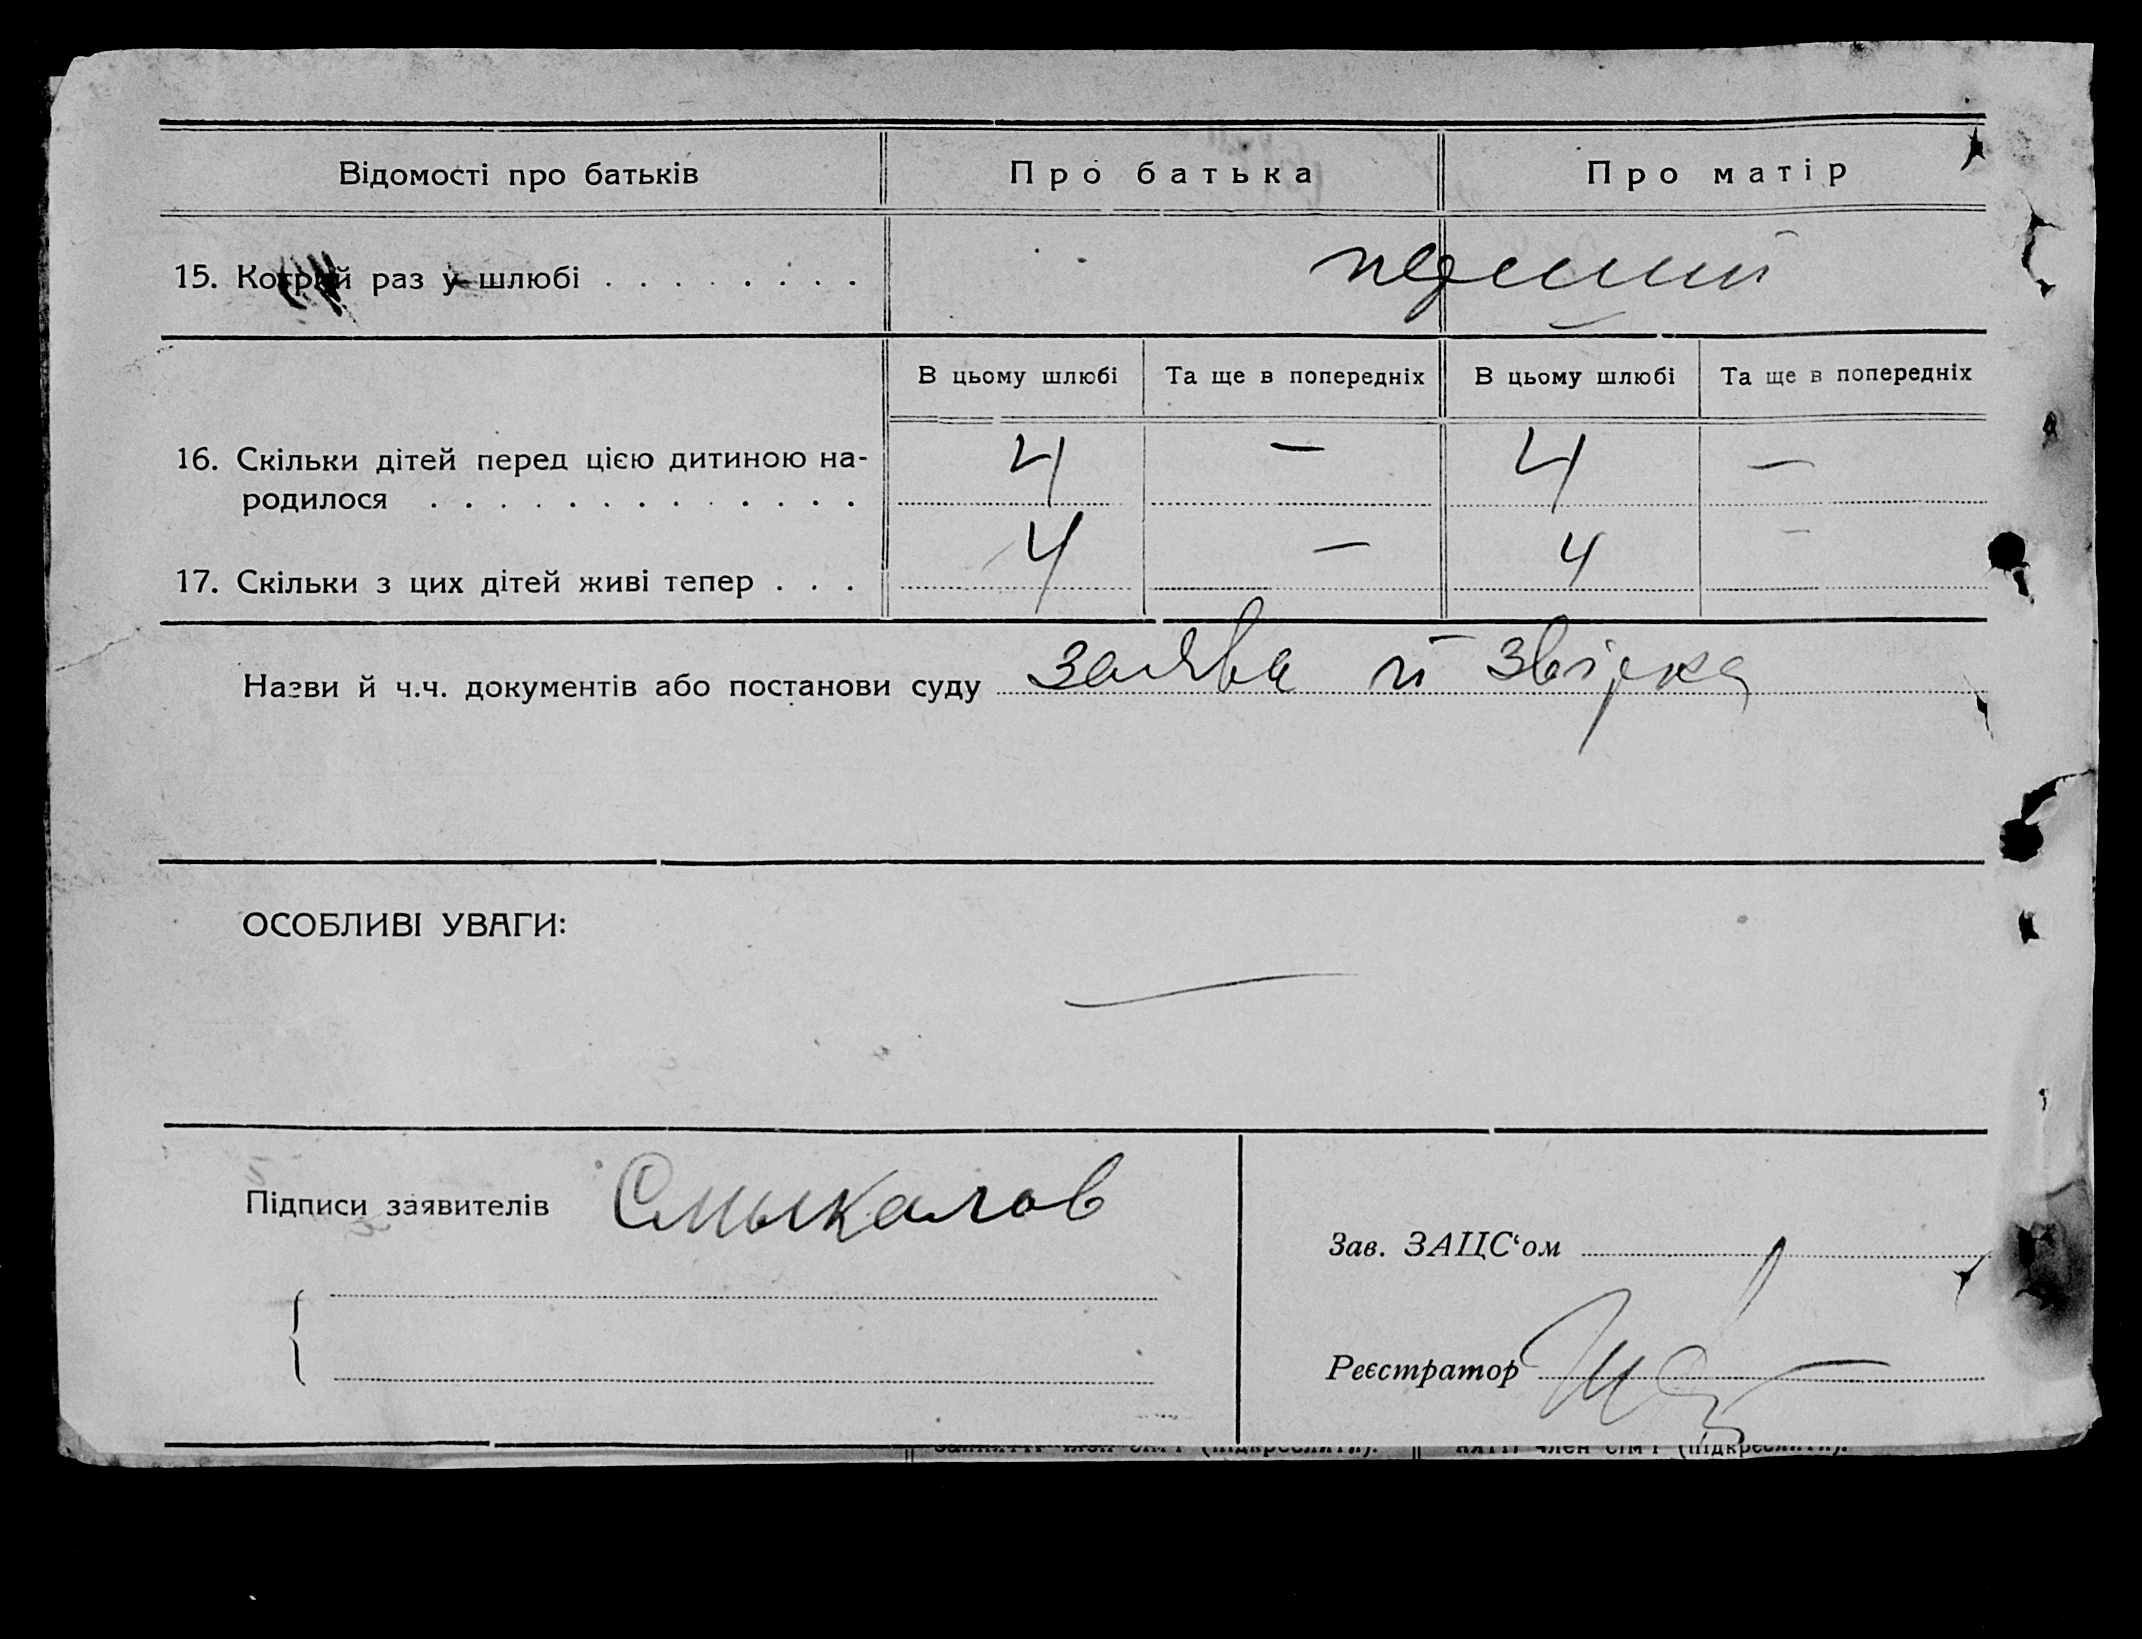 Відомості про батьків Про батька Про матір
15. Котрий раз у шлюбі . . . . . . . . перший
В цьому шлюбі Та ще в попередніх В цьому шлюбі Та ще в попередніх
16. Скільки дітей перед цією дитиною на- 4 — 4 —
родилося . . . . . . . . . . . . .
17. Скільки з цих дітей живі тепер . . . 4 — 4 —
Назви й ч.ч. документів або постанови суду заява й звірка
ОСОБЛИВІ УВАГИ:
—
Підписи заявителів Смыкалов
Зав. ЗАЦС‘ом
Реєстратор
член сім'ї (підкреслити). няття член сім'ї (підкреслити).